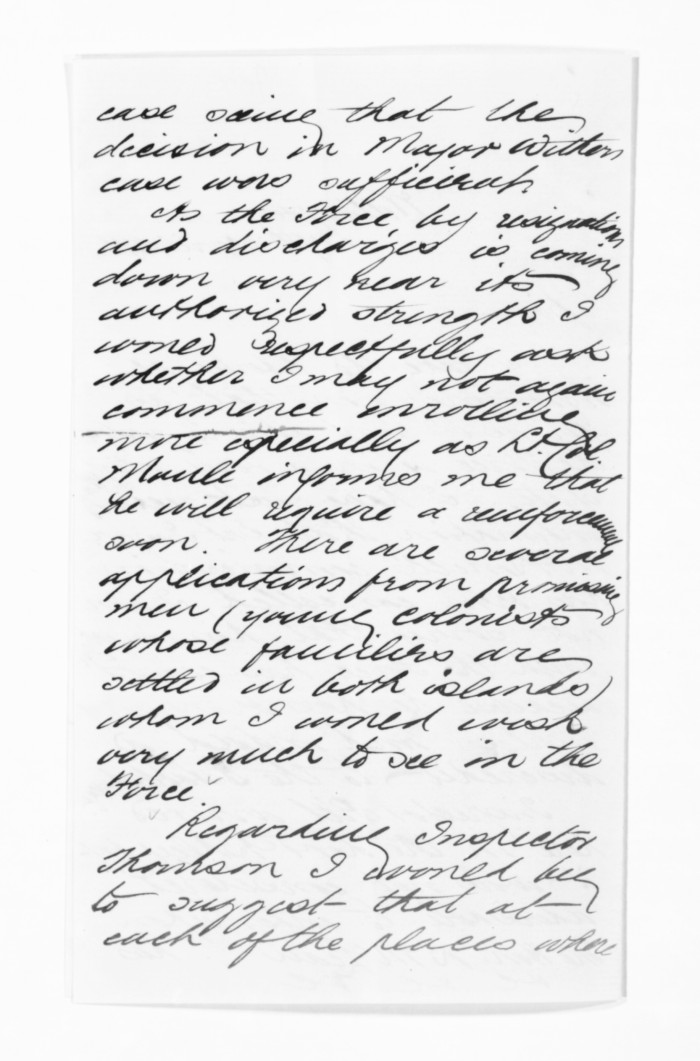 case seeing that the
decision in Major Withers
case was sufficient.
As the Force by resignations
and discharges is coming
down very near its
authorized strength I
would respectfully ask
whether I may not again
commence enrolling
more especially as Lt. Col.
Moule informs me that
he will require a reinforcement
soon. There are several
applications from promising
men (young colonists
whose families are
settled in both islands)
whom I would wish
very much to see in the
Force.
Regarding Inspector
Thomson I would beg
to suggest that at
each of the places where